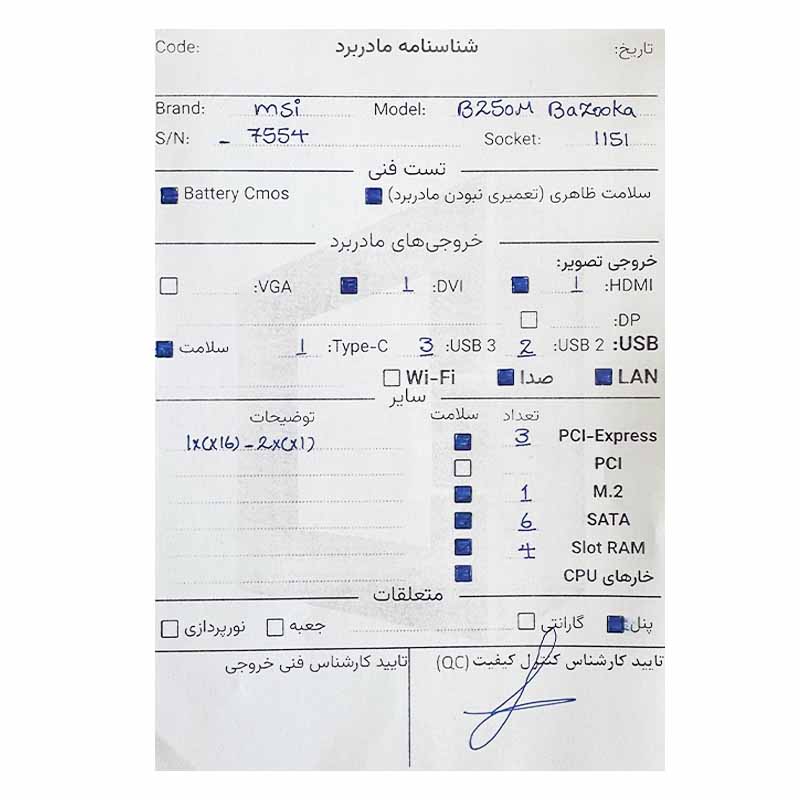 تاریخ: شناسنامه مادربرد Code:
Brand: msi Model: B250M Bazooka
S/N: - 7554 Socket: 1151
تست فنی
سلامت ظاهری (تعمیری نبودن مادربرد) Battery Cmos
خروجی‌های مادربرد
خروجی تصویر:
HDMI: 1 DVI: 1 VGA:
DP:
USB: USB 2: 2 USB 3: 3 Type-C: 1 سلامت
LAN صدا Wi-Fi
سایر
تعداد سلامت توضیحات
PCI-Express 3 1x(x16) - 2x(x1)
PCI
M.2 1
SATA 6
Slot RAM 4
خارهای CPU
متعلقات
پنل گارانتی جعبه نورپردازی
تایید کارشناس کنترل کیفیت (QC) تایید کارشناس فنی خروجی